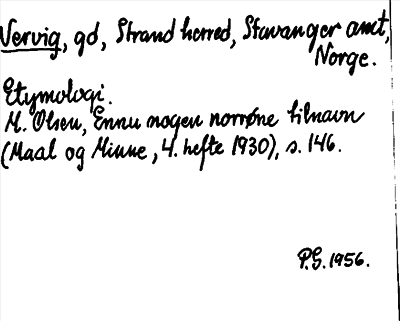 Vervig, gd, Strand herred, Stavanger amt,
Norge.
Etymologi.
M. Olsen, Ennu nogen norrøne tilnavn
(Maal og Minne, 4. hefte 1930), s. 146.
P.G. 1956.